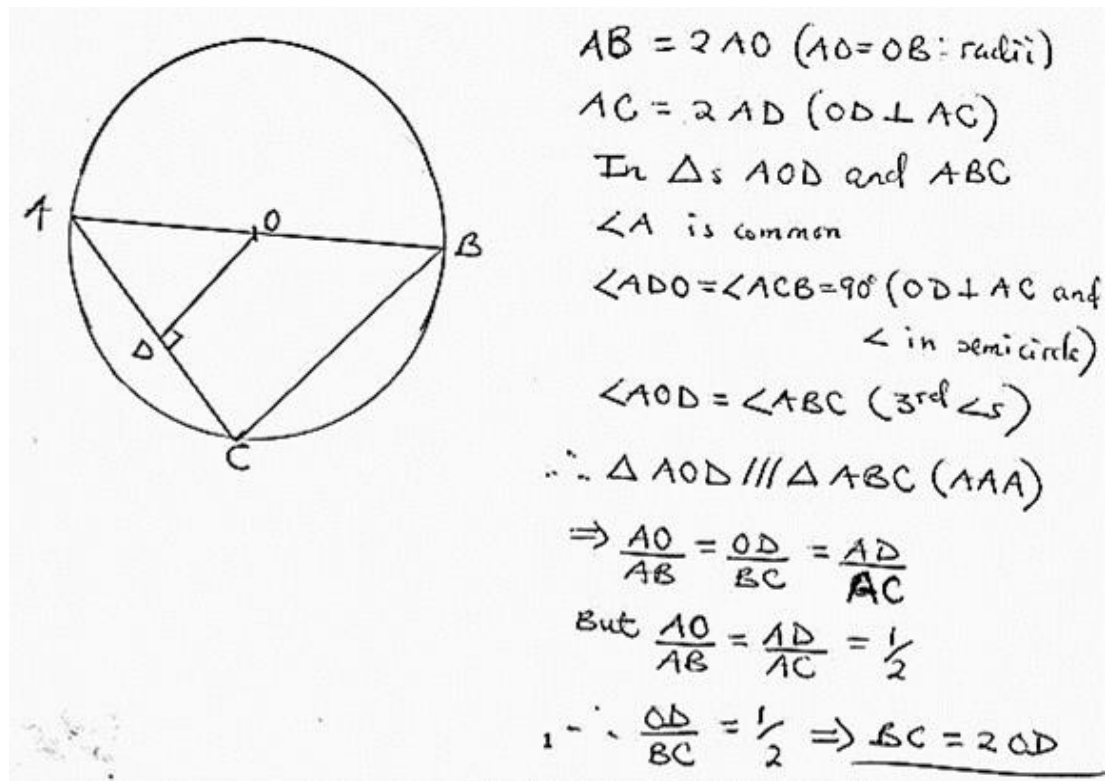 A
O
B
D
C
AB = 2 AO (AO = OB : radii)
AC = 2 AD (OD ⊥ AC)
In Δs AOD and ABC
∠A is common
∠ADO = ∠ACB = 90° (OD ⊥ AC and
∠ in semicircle)
∠AOD = ∠ABC (3rd ∠s)
∴ Δ AOD /// Δ ABC (AAA)
⇒ AO/AB = OD/BC = AD/AC
But AO/AB = AD/AC = 1/2
1 ∴ OD/BC = 1/2 ⇒ BC = 2 OD